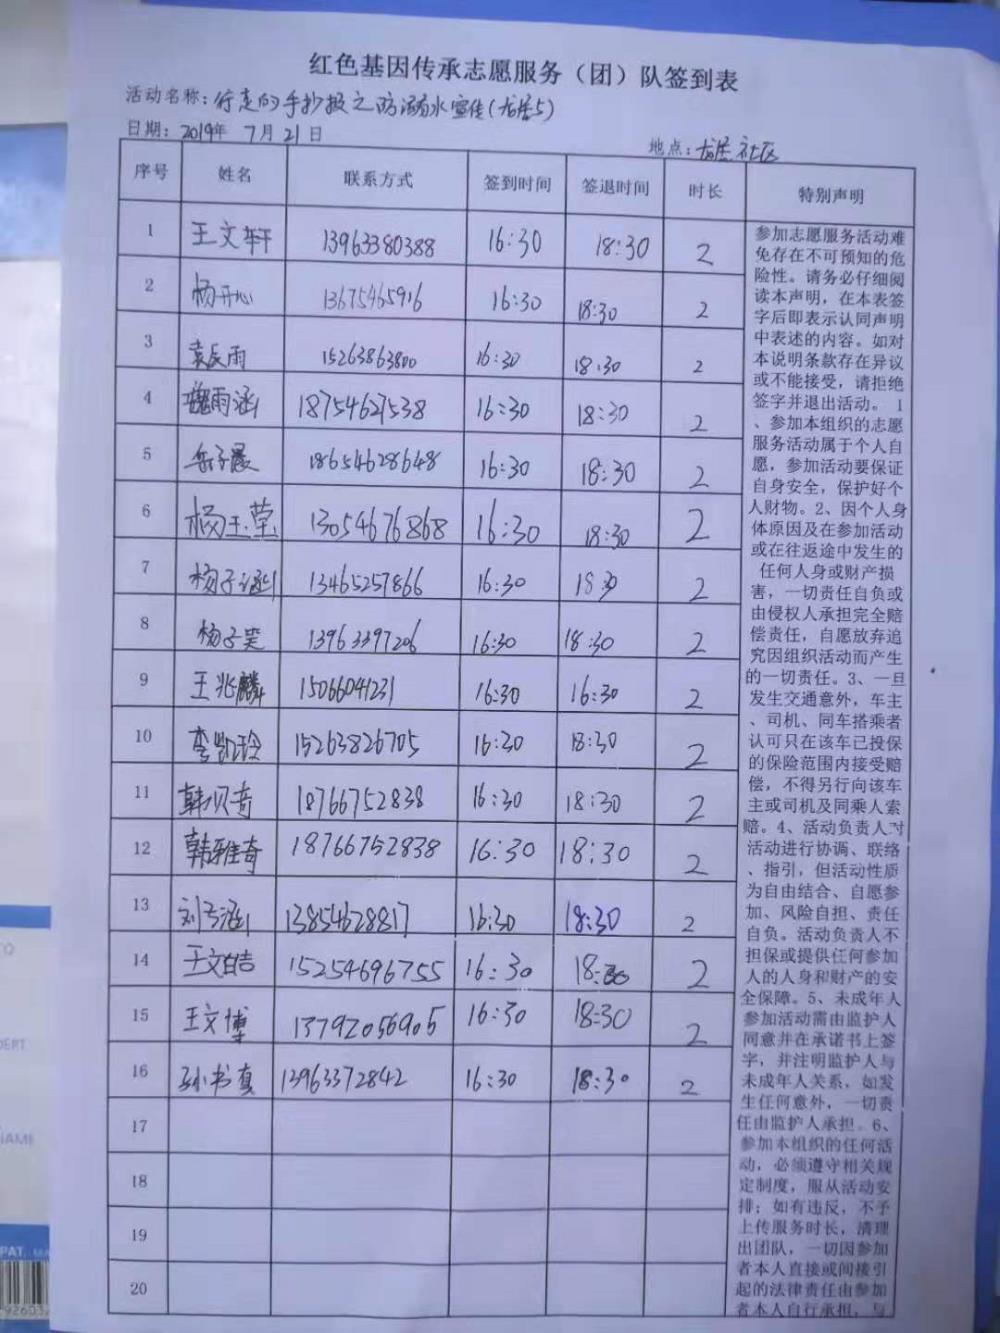 红色基因传承志愿服务（团）队签到表
活动名称：行走的手抄报之防溺水宣传(龙居5)
日期：2019年 7月21日
地点：龙居社区
序号 姓名 联系方式 签到时间 签退时间 时长 特别声明
1 王文轩 13963380388 16:30 18:30 2
2 杨开心 13675465916 16:30 18:30 2
3 袁辰雨 15263863800 16:30 18:30 2
4 魏雨涵 18754627538 16:30 18:30 2
5 岳子晨 18654628648 16:30 18:30 2
6 杨玉莹 13054676868 16:30 18:30 2
7 杨子涵 13465257866 16:30 18:30 2
8 杨子奕 13963397206 16:30 18:30 2
9 王兆麟 15066041231 16:30 16:30 2
10 李凯玲 15263826705 16:30 18:30 2
11 韩贝奇 18766752838 16:30 18:30 2
12 韩雅奇 18766752838 16:30 18:30 2
13 刘子涵 13854628817 16:30 18:30 2
14 王文皓 15254696755 16:30 18:30 2
15 王文博 13792056905 16:30 18:30 2
16 孙书真 13963372842 16:30 18:30 2
17
18
19
20
参加志愿服务活动难
免存在不可预知的危
险性。请务必仔细阅
读本声明，在本表签
字后即表示认同声明
中表述的内容。如对
本说明条款存在异议
或不能接受，请拒绝
签字并退出活动。 1
、参加本组织的志愿
服务活动属于个人自
愿，参加活动要保证
自身安全，保护好个
人财物。2、因个人身
体原因及在参加活动
或在往返途中发生的
任何人身或财产损
害，一切责任自负或
由侵权人承担完全赔
偿责任，自愿放弃追
究因组织活动而产生
的一切责任。3、一旦
发生交通意外，车主
、司机、同车搭乘者
认可只在该车已投保
的保险范围内接受赔
偿，不得另行向该车
主或司机及同乘人索
赔。4、活动负责人对
活动进行协调、联络
、指引，但活动性质
为自由结合、自愿参
加、风险自担、责任
自负。活动负责人不
担保或提供任何参加
人的人身和财产的安
全保障。5、未成年人
参加活动需由监护人
同意并在承诺书上签
字，并注明监护人与
未成年人关系，如发
生任何意外，一切责
任由监护人承担。6、
参加本组织的任何活
动，必须遵守相关规
定制度，服从活动安
排；如有违反，不予
上传服务时长，清理
出团队，一切因参加
者本人直接或间接引
起的法律责任由参加
者本人自行承担，与